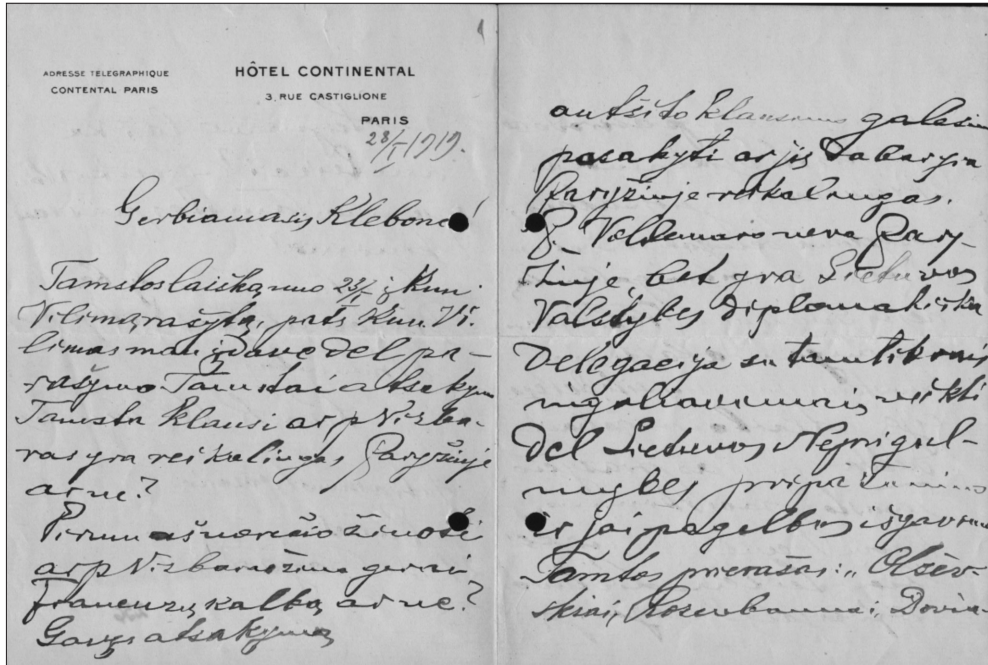 ADRESSE TÉLÉGRAPHIQUE
CONTENTAL PARIS
HÔTEL CONTINENTAL
3, RUE CASTIGLIONE
PARIS
28/I 1919.
Gerbiamasis Klebone!
Tamstos laišką nuo 23/I į Kun.
Vilimą rašytą, pats Kun. Vi-
limas man įdavė del pa-
rašymo Tamstai atsakymo
Tamsta klausi ar p Vizba-
ras yra reikalingas Paryžiuje
ar ne?
Pirma aš norėčio žinoti
ar p Vizbaras žino gerai
Francuzų kalbą ar ne?
Gavęs atsakymą
ant šito klausimo galėsiu
pasakyti ar jis dabar yra
Paryžiuje reikalingas.
P. Voldemaro nera Pary-
žiuje, bet yra Lietuvos
Valstybes diplomatiška
Delegacija su tam tikrais
įngaliavimais veikti
del Lietuvos Neprigul-
mybes pripažinimo
ir jai pagelbos išgavimo
Tamstos prierašas: „Olšev-
skiai, Rosenbaumai,